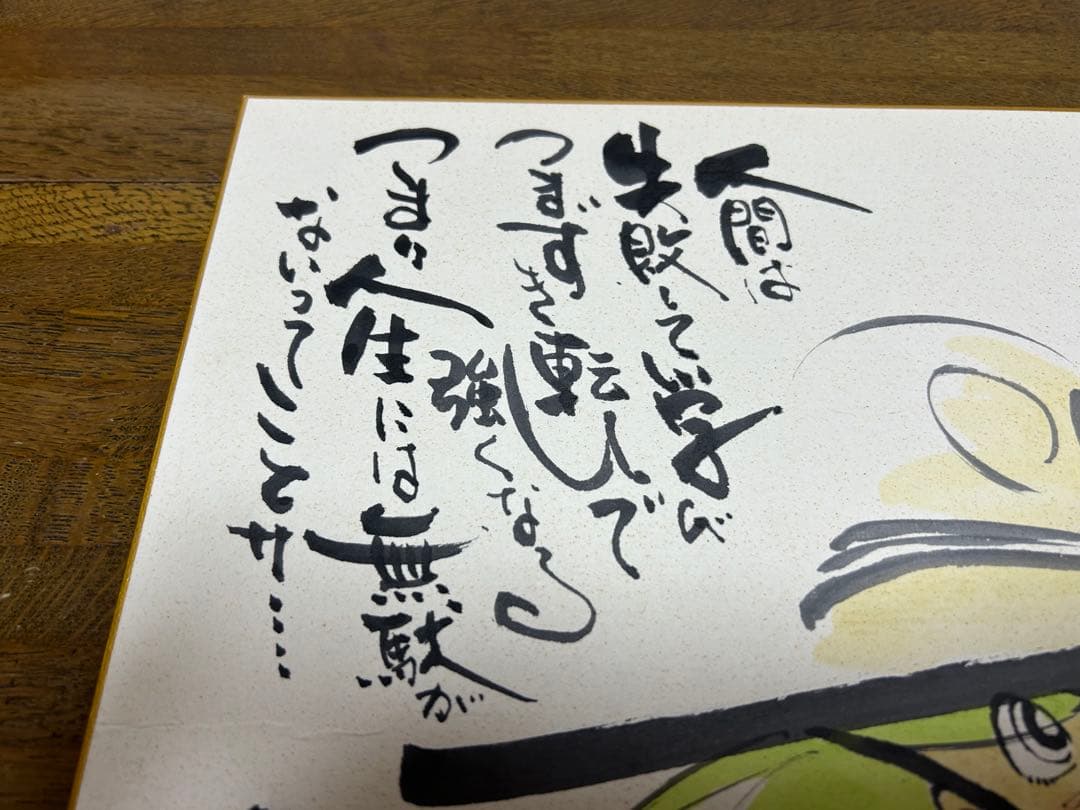 人間は
失敗して学び
つまずき転んで
強くなる
つまり人生には無駄が
ないってことサ……